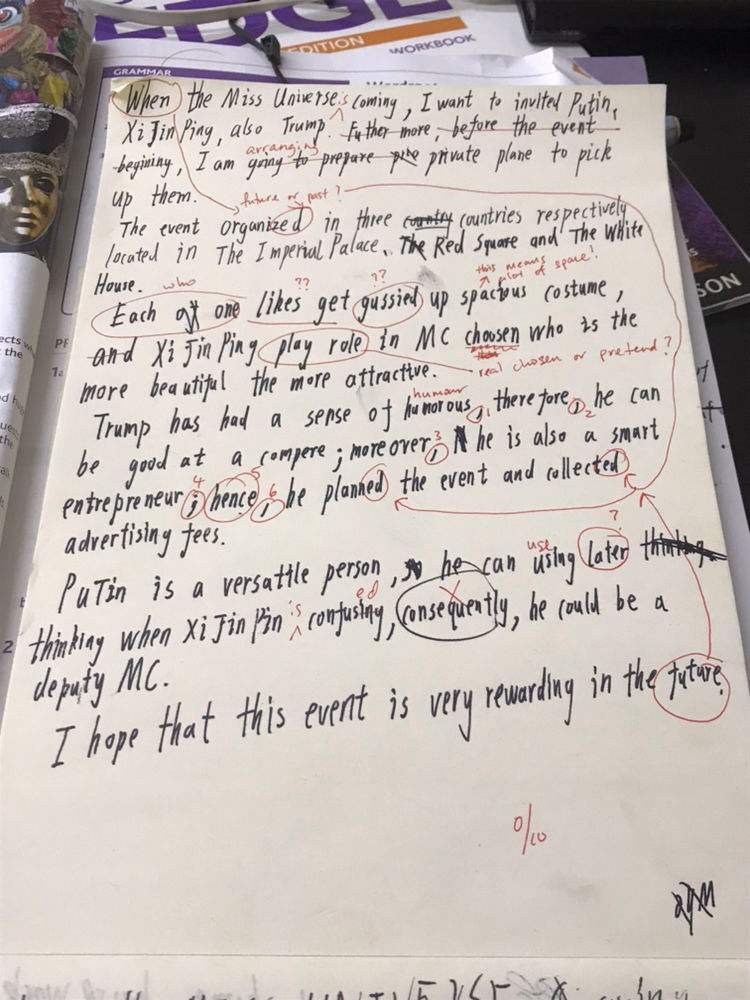 EDGE
EDITION
WORKBOOK
GRAMMAR
When the Miss Universe is coming, I want to invited Putin,
Xi Jin Ping, also Trump. Futher more, before the event
arranging
begining, I am going to prepare private plane to pick
up them.
future or past?
The event organized in three country countries respectively
located in The Imperial Palace, The Red Square and The White
House.
this means
plot of space!
who ?? ??
Each of one likes get gussied up spacious costume,
and Xi Jin Ping play role in MC choosen who is the
real chosen or pretend?
more beautiful the more attractive.
humour
Trump has had a sense of humorous, 1 therefore, 2 he can
be good at a compere; moreover, 3 he is also a smart
4 5 6
entrepreneur; hence, he planned the event and collected
advertising fees.
?
use
PuTin is a versattle person, he can using later thinking
ed
is
thinking when Xi Jin Pin confusing, consequently, he could be a
deputy MC.
I hope that this event is very rewarding in the future.
0/10
SON